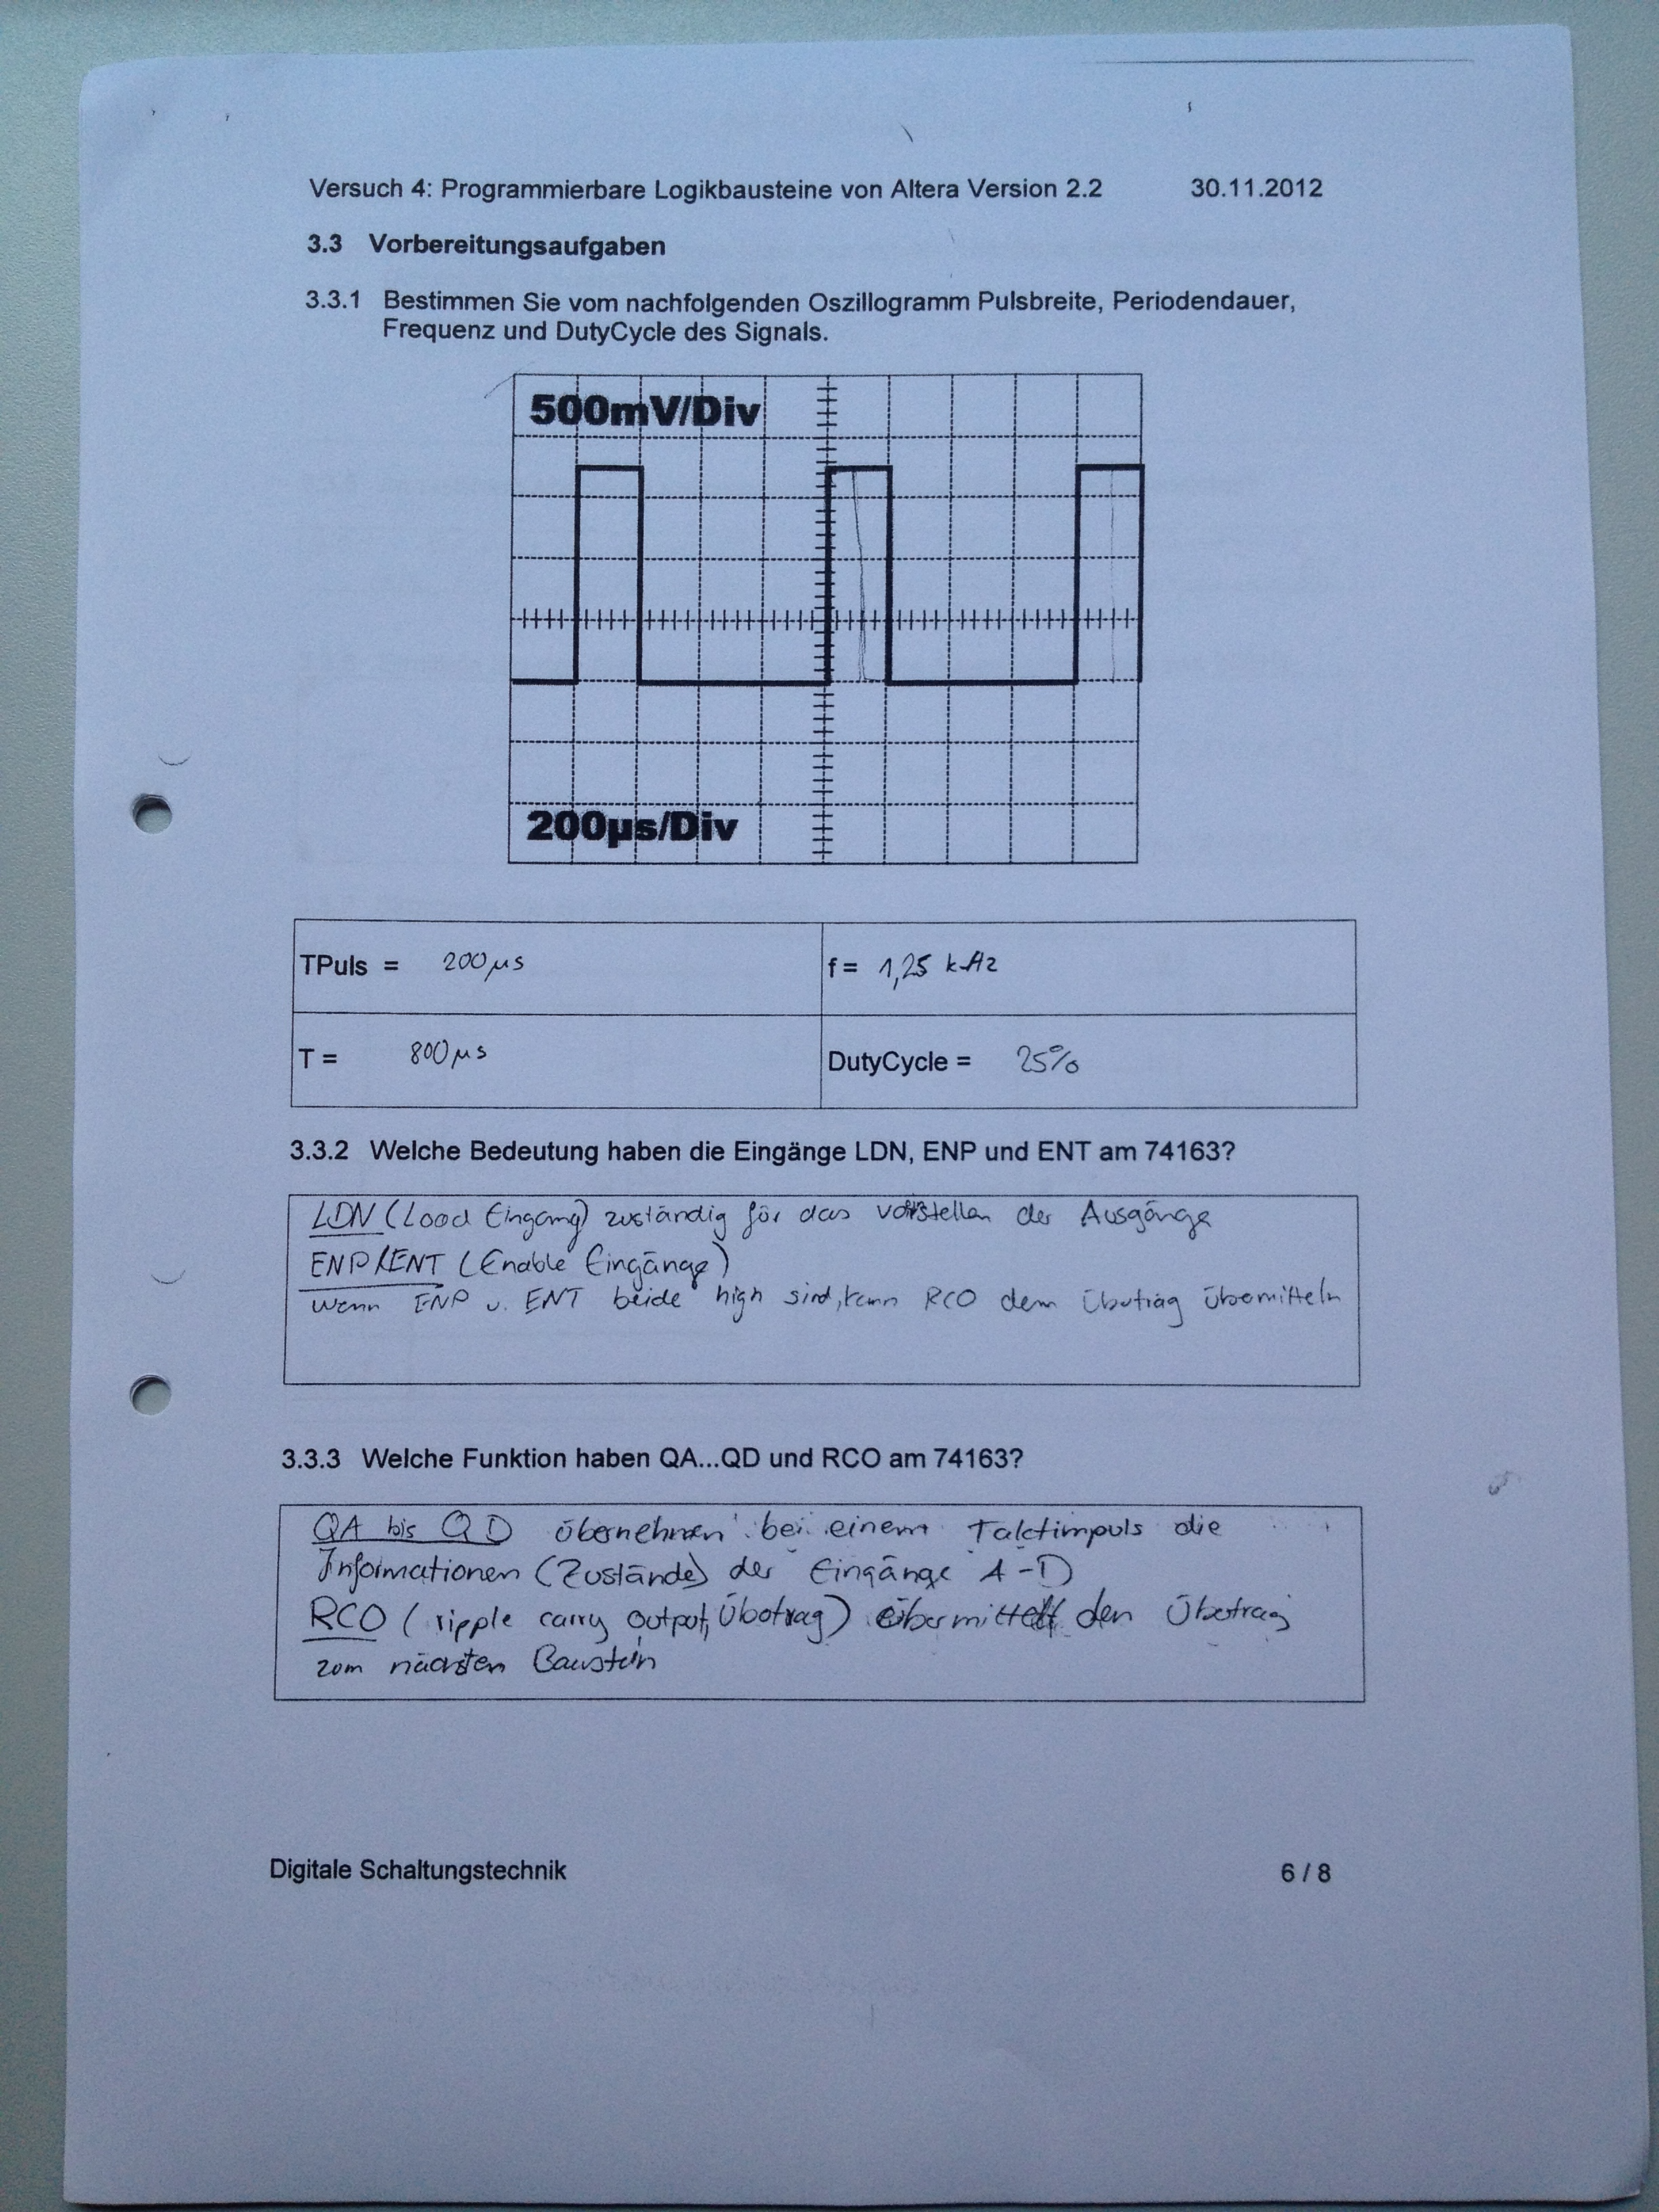 Versuch 4: Programmierbare Logikbausteine von Altera Version 2.2 30.11.2012
3.3 Vorbereitungsaufgaben
3.3.1 Bestimmen Sie vom nachfolgenden Oszillogramm Pulsbreite, Periodendauer,
Frequenz und DutyCycle des Signals.
500mV/Div
200µs/Div
TPuls = 200µs f = 1,25 kHz
T = 800µs DutyCycle = 25%
3.3.2 Welche Bedeutung haben die Eingänge LDN, ENP und ENT am 74163?
LDN (Load Eingang) zuständig für das der Ausgänge
ENP/ENT (Enable Eingänge)
wenn ENP u. ENT beide high sind, kann RCO den Übertrag übermitteln
3.3.3 Welche Funktion haben QA...QD und RCO am 74163?
QA bis QD übernehmen bei einem Taktimpuls die
Informationen (Zustände) der Eingänge A-D
RCO (ripple carry output, Übertrag) übermittelt den Übertrag
zum nächsten Baustein
Digitale Schaltungstechnik 6 / 8